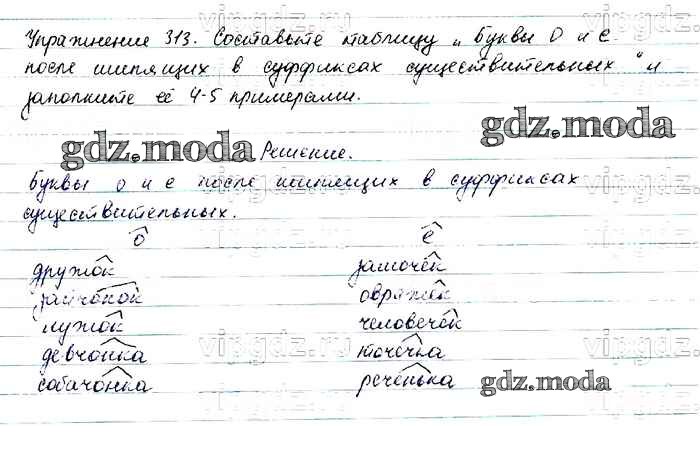 Упражнение 313. Составьте таблицу „ Буквы О и е
после шипящих в суффиксах существительных " и
заполните её 4-5 примерами.
gdz.moda
gdz.moda Решение.
Буквы о и е после шипящих в суффиксах
существительных.
о е
дружок замочек
зайчонок овражек
лужок человечек
девчонка точечка
собачонка реченька
gdz.moda
vipgdz.ru
vipgdz.ru
vipgdz.ru